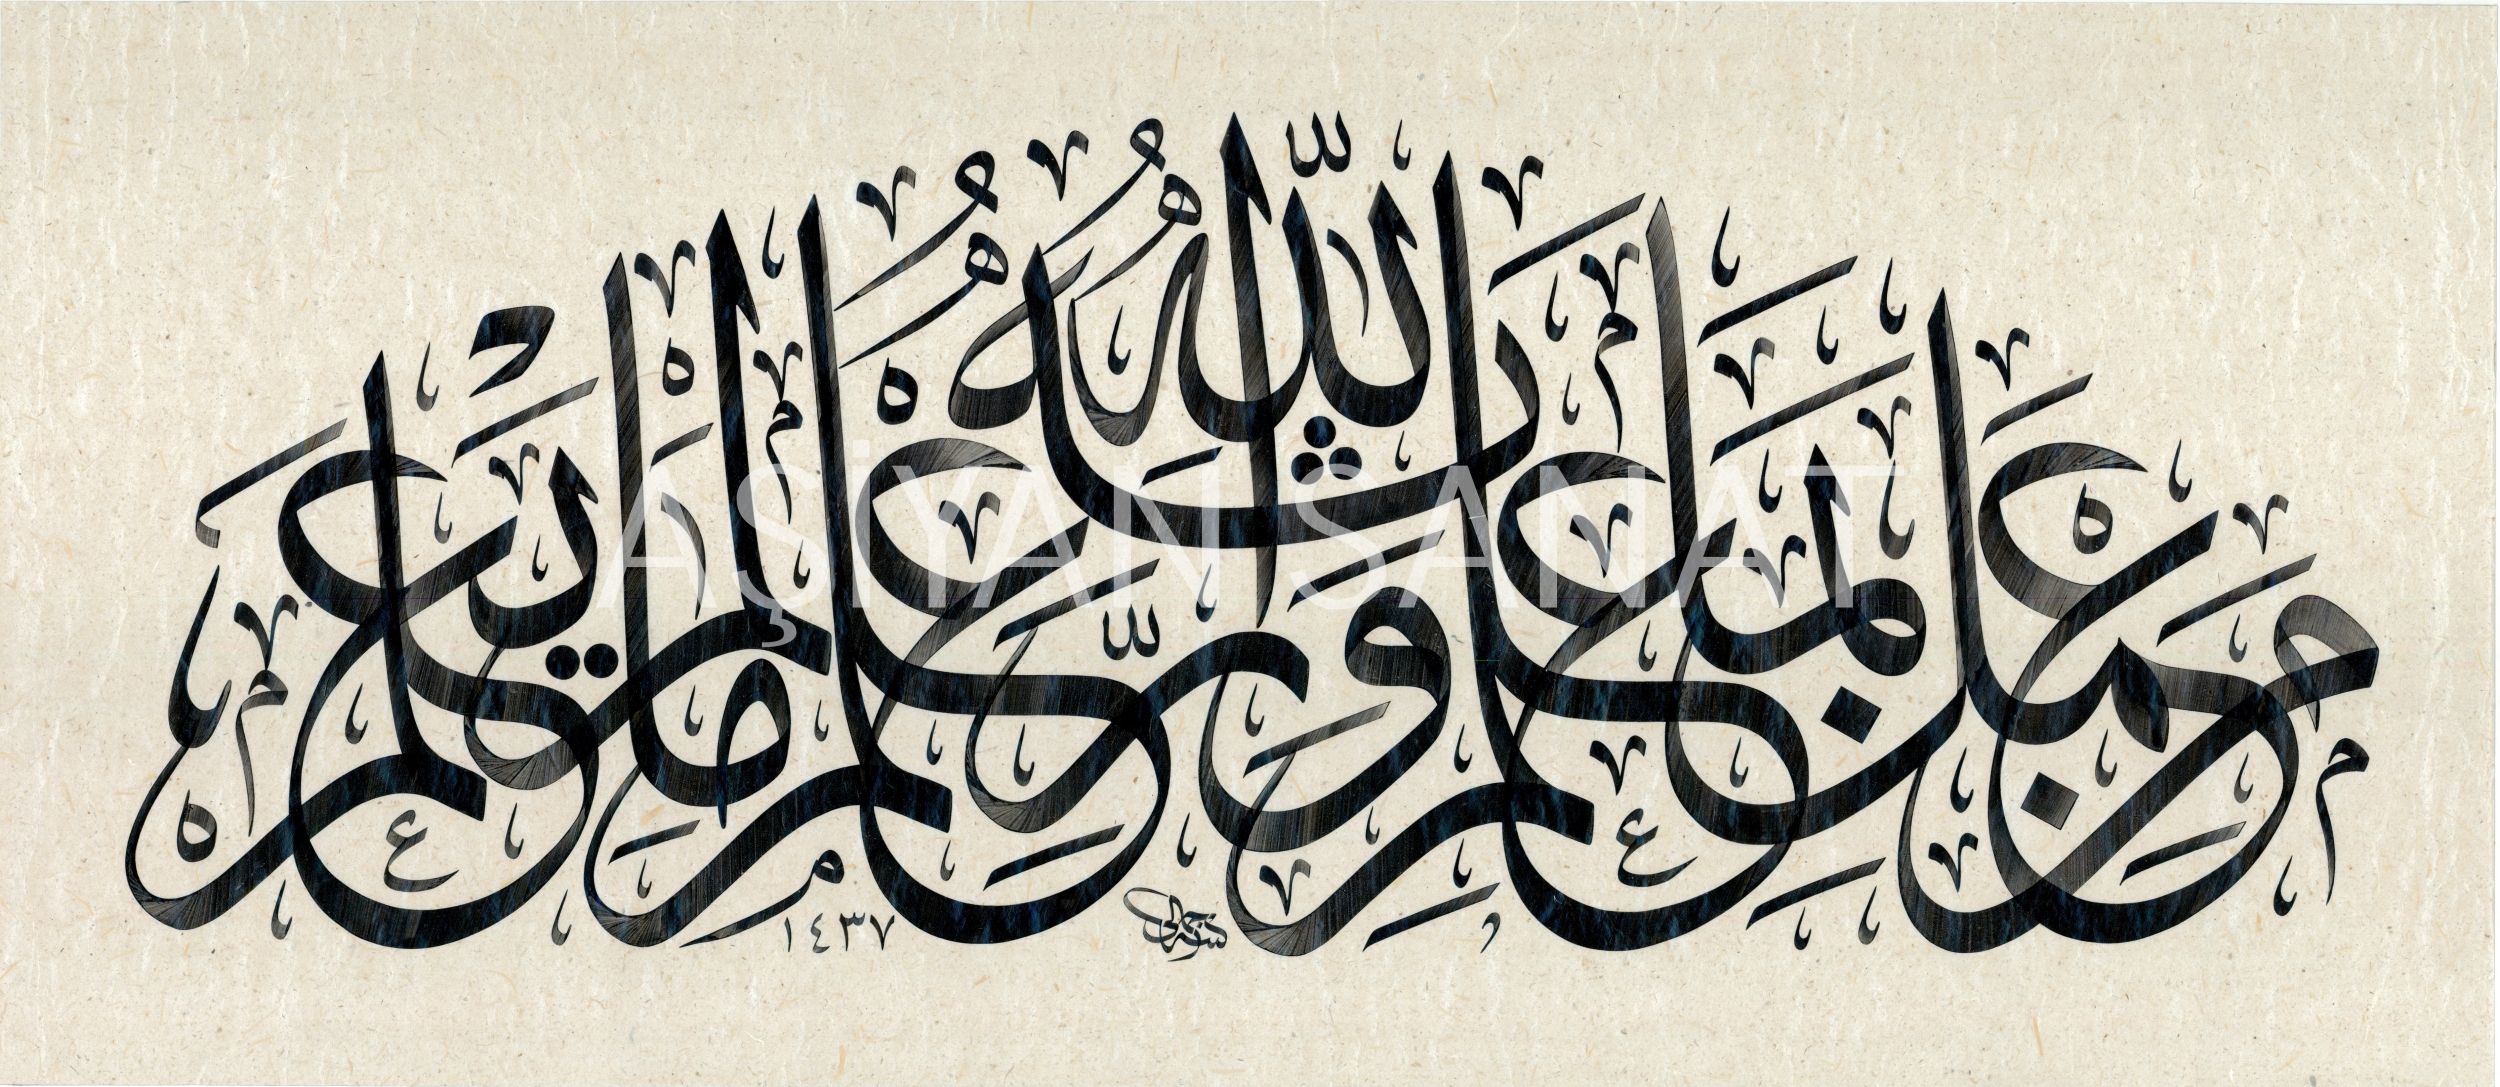 مَنْ عَمِلَ بِمَا عَلِمَ وَرَّثَهُ اللّٰهُ عِلْمَ مَا لَمْ يَعْلَمْ
١٤٣٧
AŞİYAN SANAT